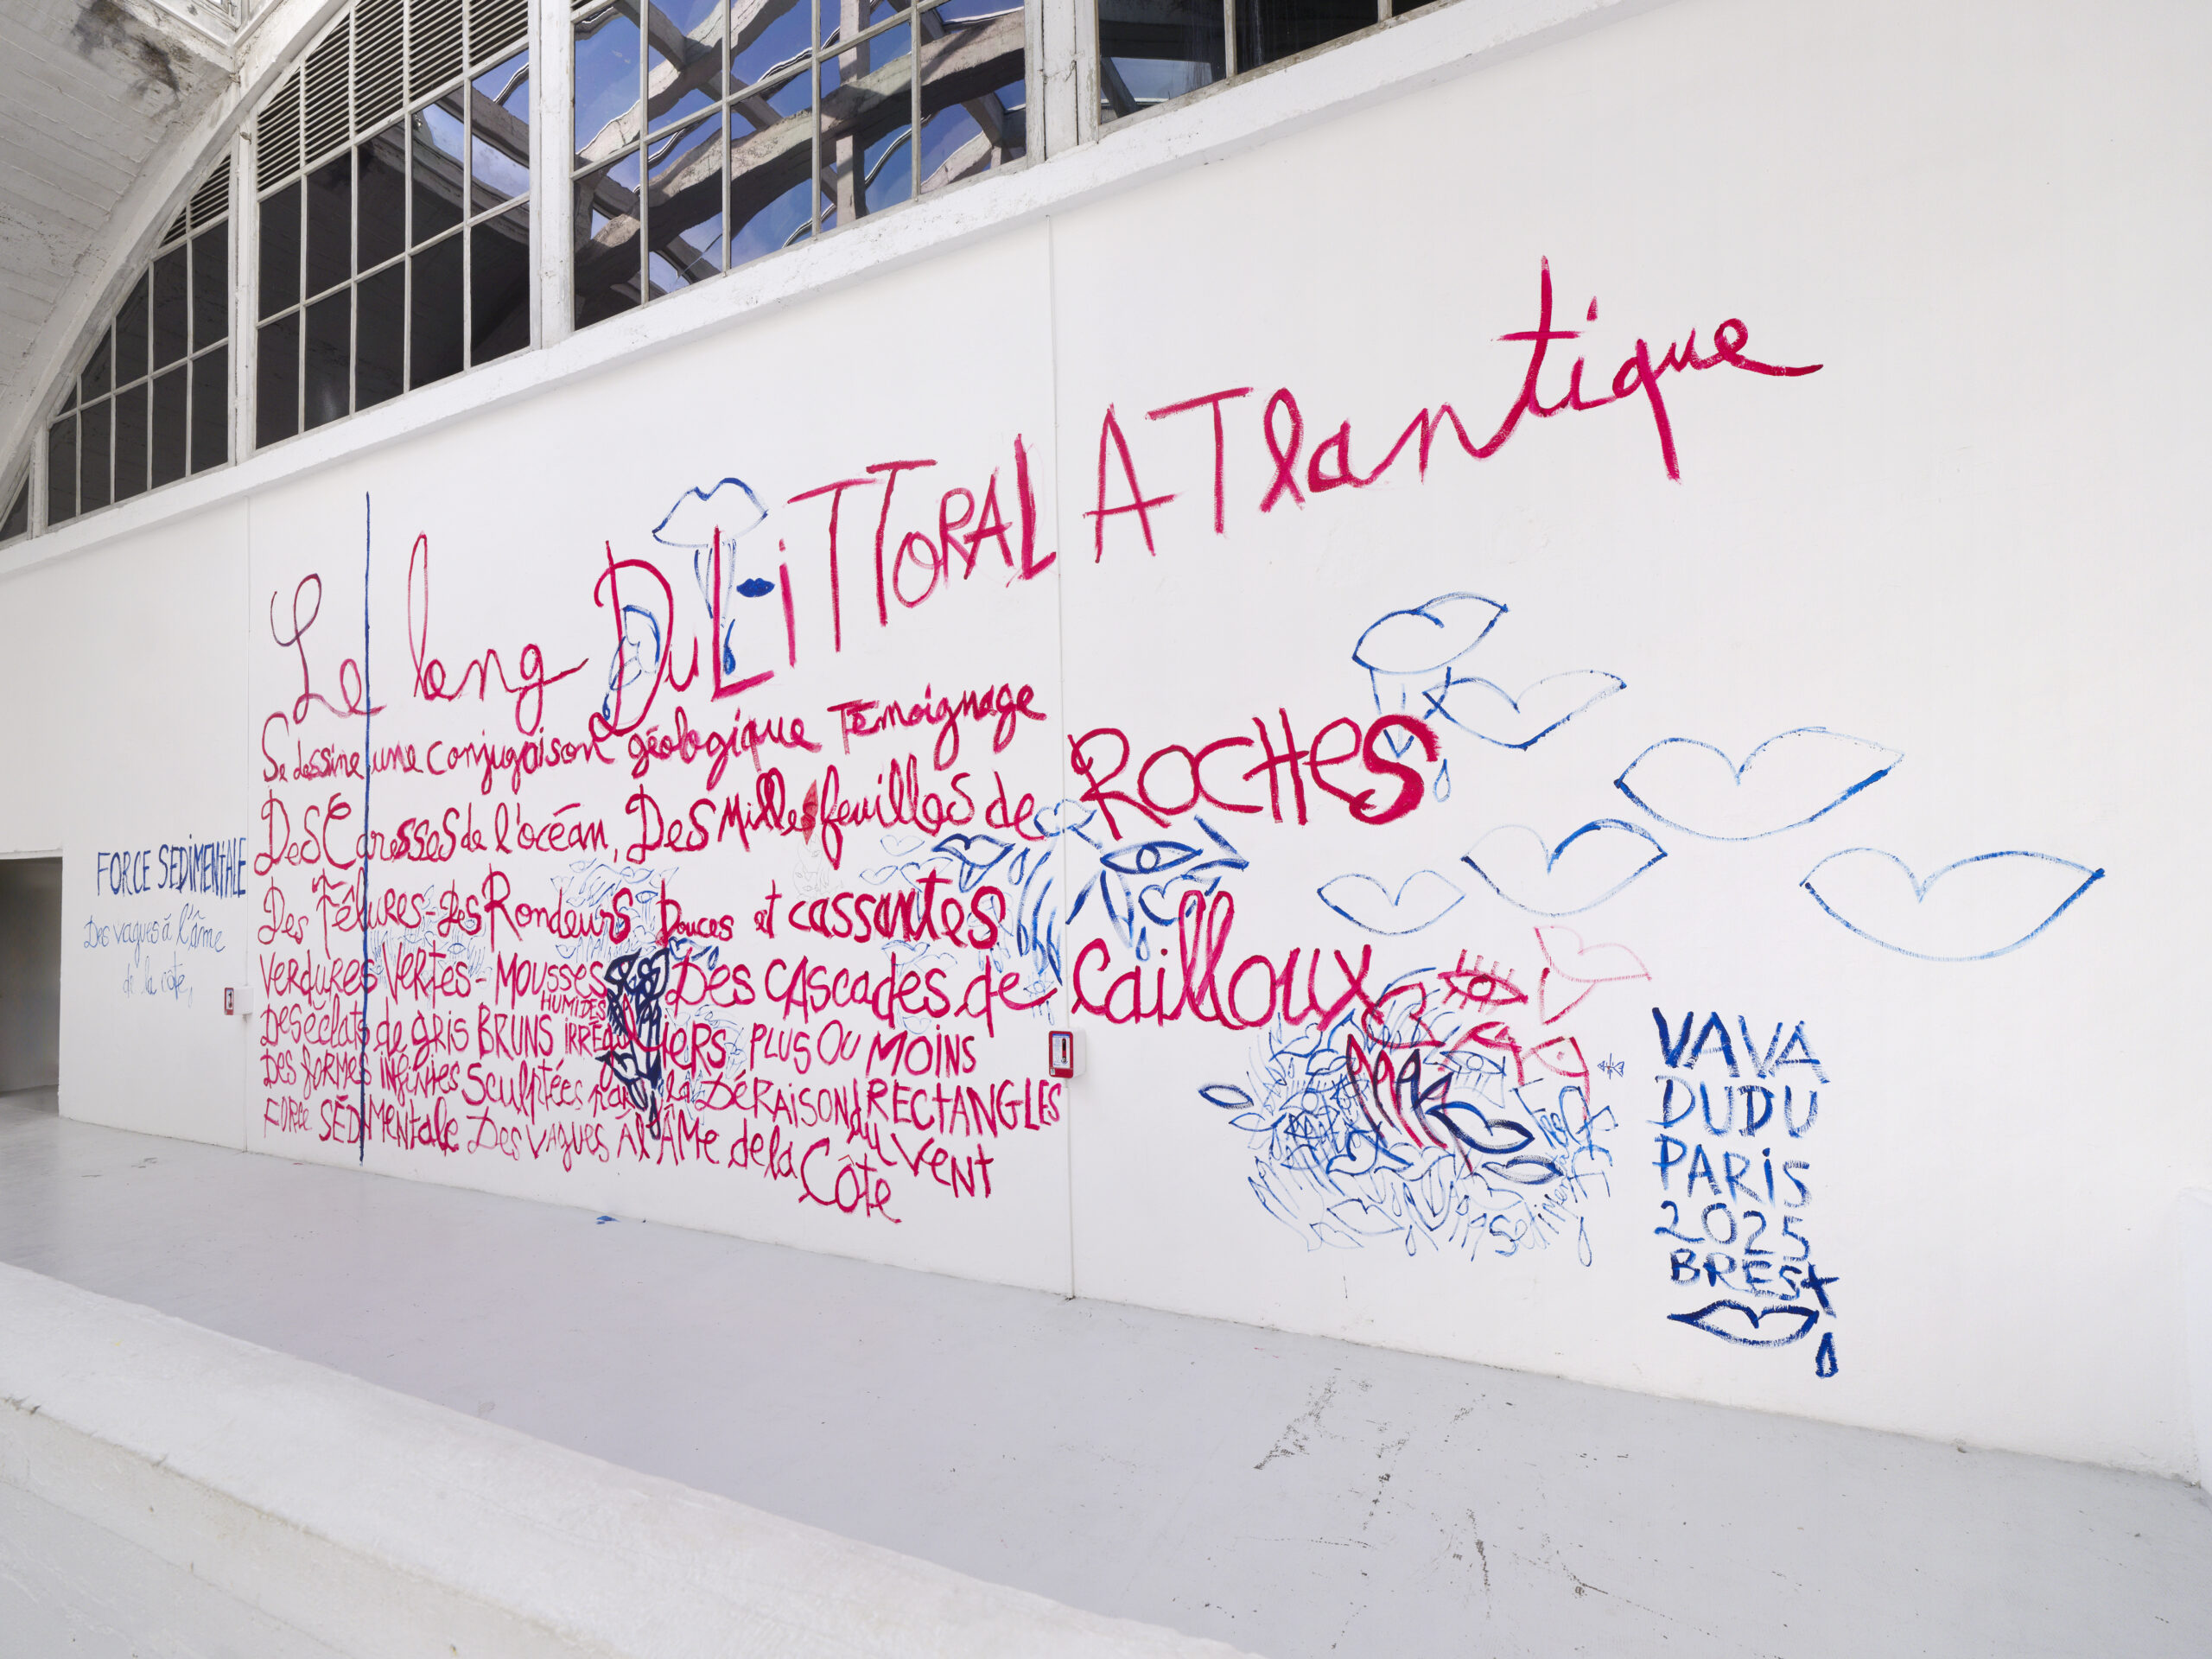 FORCE SEDIMENTALE
Des vagues à l'âme
de la côte,
Le long Du LiTTORAL ATlantique
Se dessine une conjugaison géologique Témoignage
Des Caresses de l'océan, Des Milles feuilles de ROCHES
Des Fêlures - Des Rondeurs Douces et cassantes
Verdures Vertes - Mousses Des CAscades de Cailloux
HUMIDES
Des éclats de gris BRUNS irréguliers PLUS OU MOINS
Des formes infinies Sculptées par la DÉRAISON RECTANGLES
du VENT
Force SÉDIMENtale Des VAgues À l'ÂMe de la Côte
VAVA
DUDU
PARIS
2025
BREST